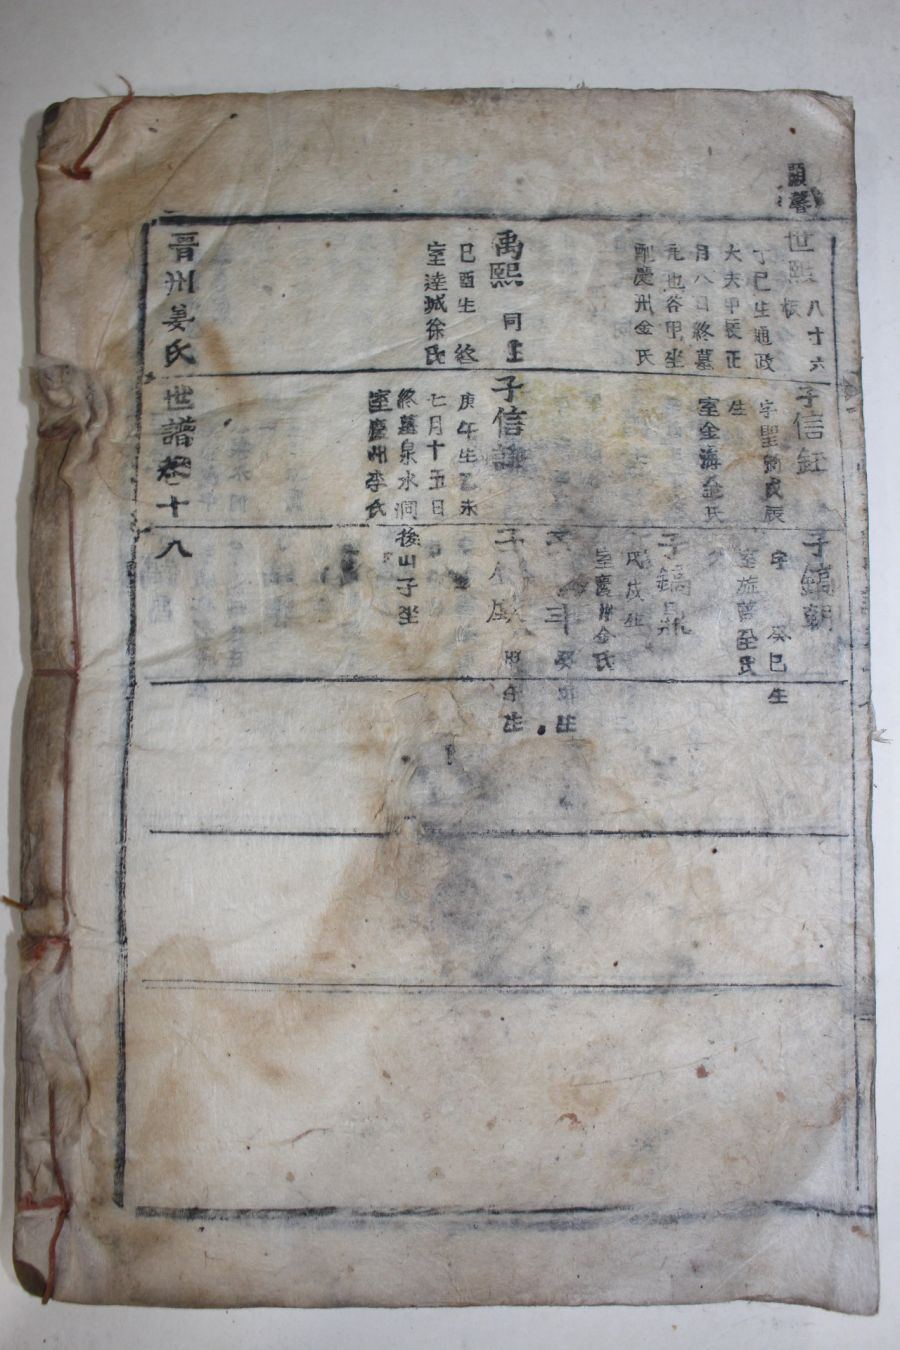 顯馨
世熙
八十六
板
丁巳生通政
大夫甲辰正
月八日終墓
元也谷甲坐
配慶州金氏
禹熙
同上
巳酉生 終
室達城徐氏
子信
字聖
戊辰
生
室金海金氏
子信謙
庚午生乙未
七月十五日
終墓泉水洞後山子坐
室慶州李氏
子鎬朝
字 癸巳生
子鎬鼎
戊戌生
室慶州金氏
子
卯生
子
午生
晋州姜氏世譜卷十八